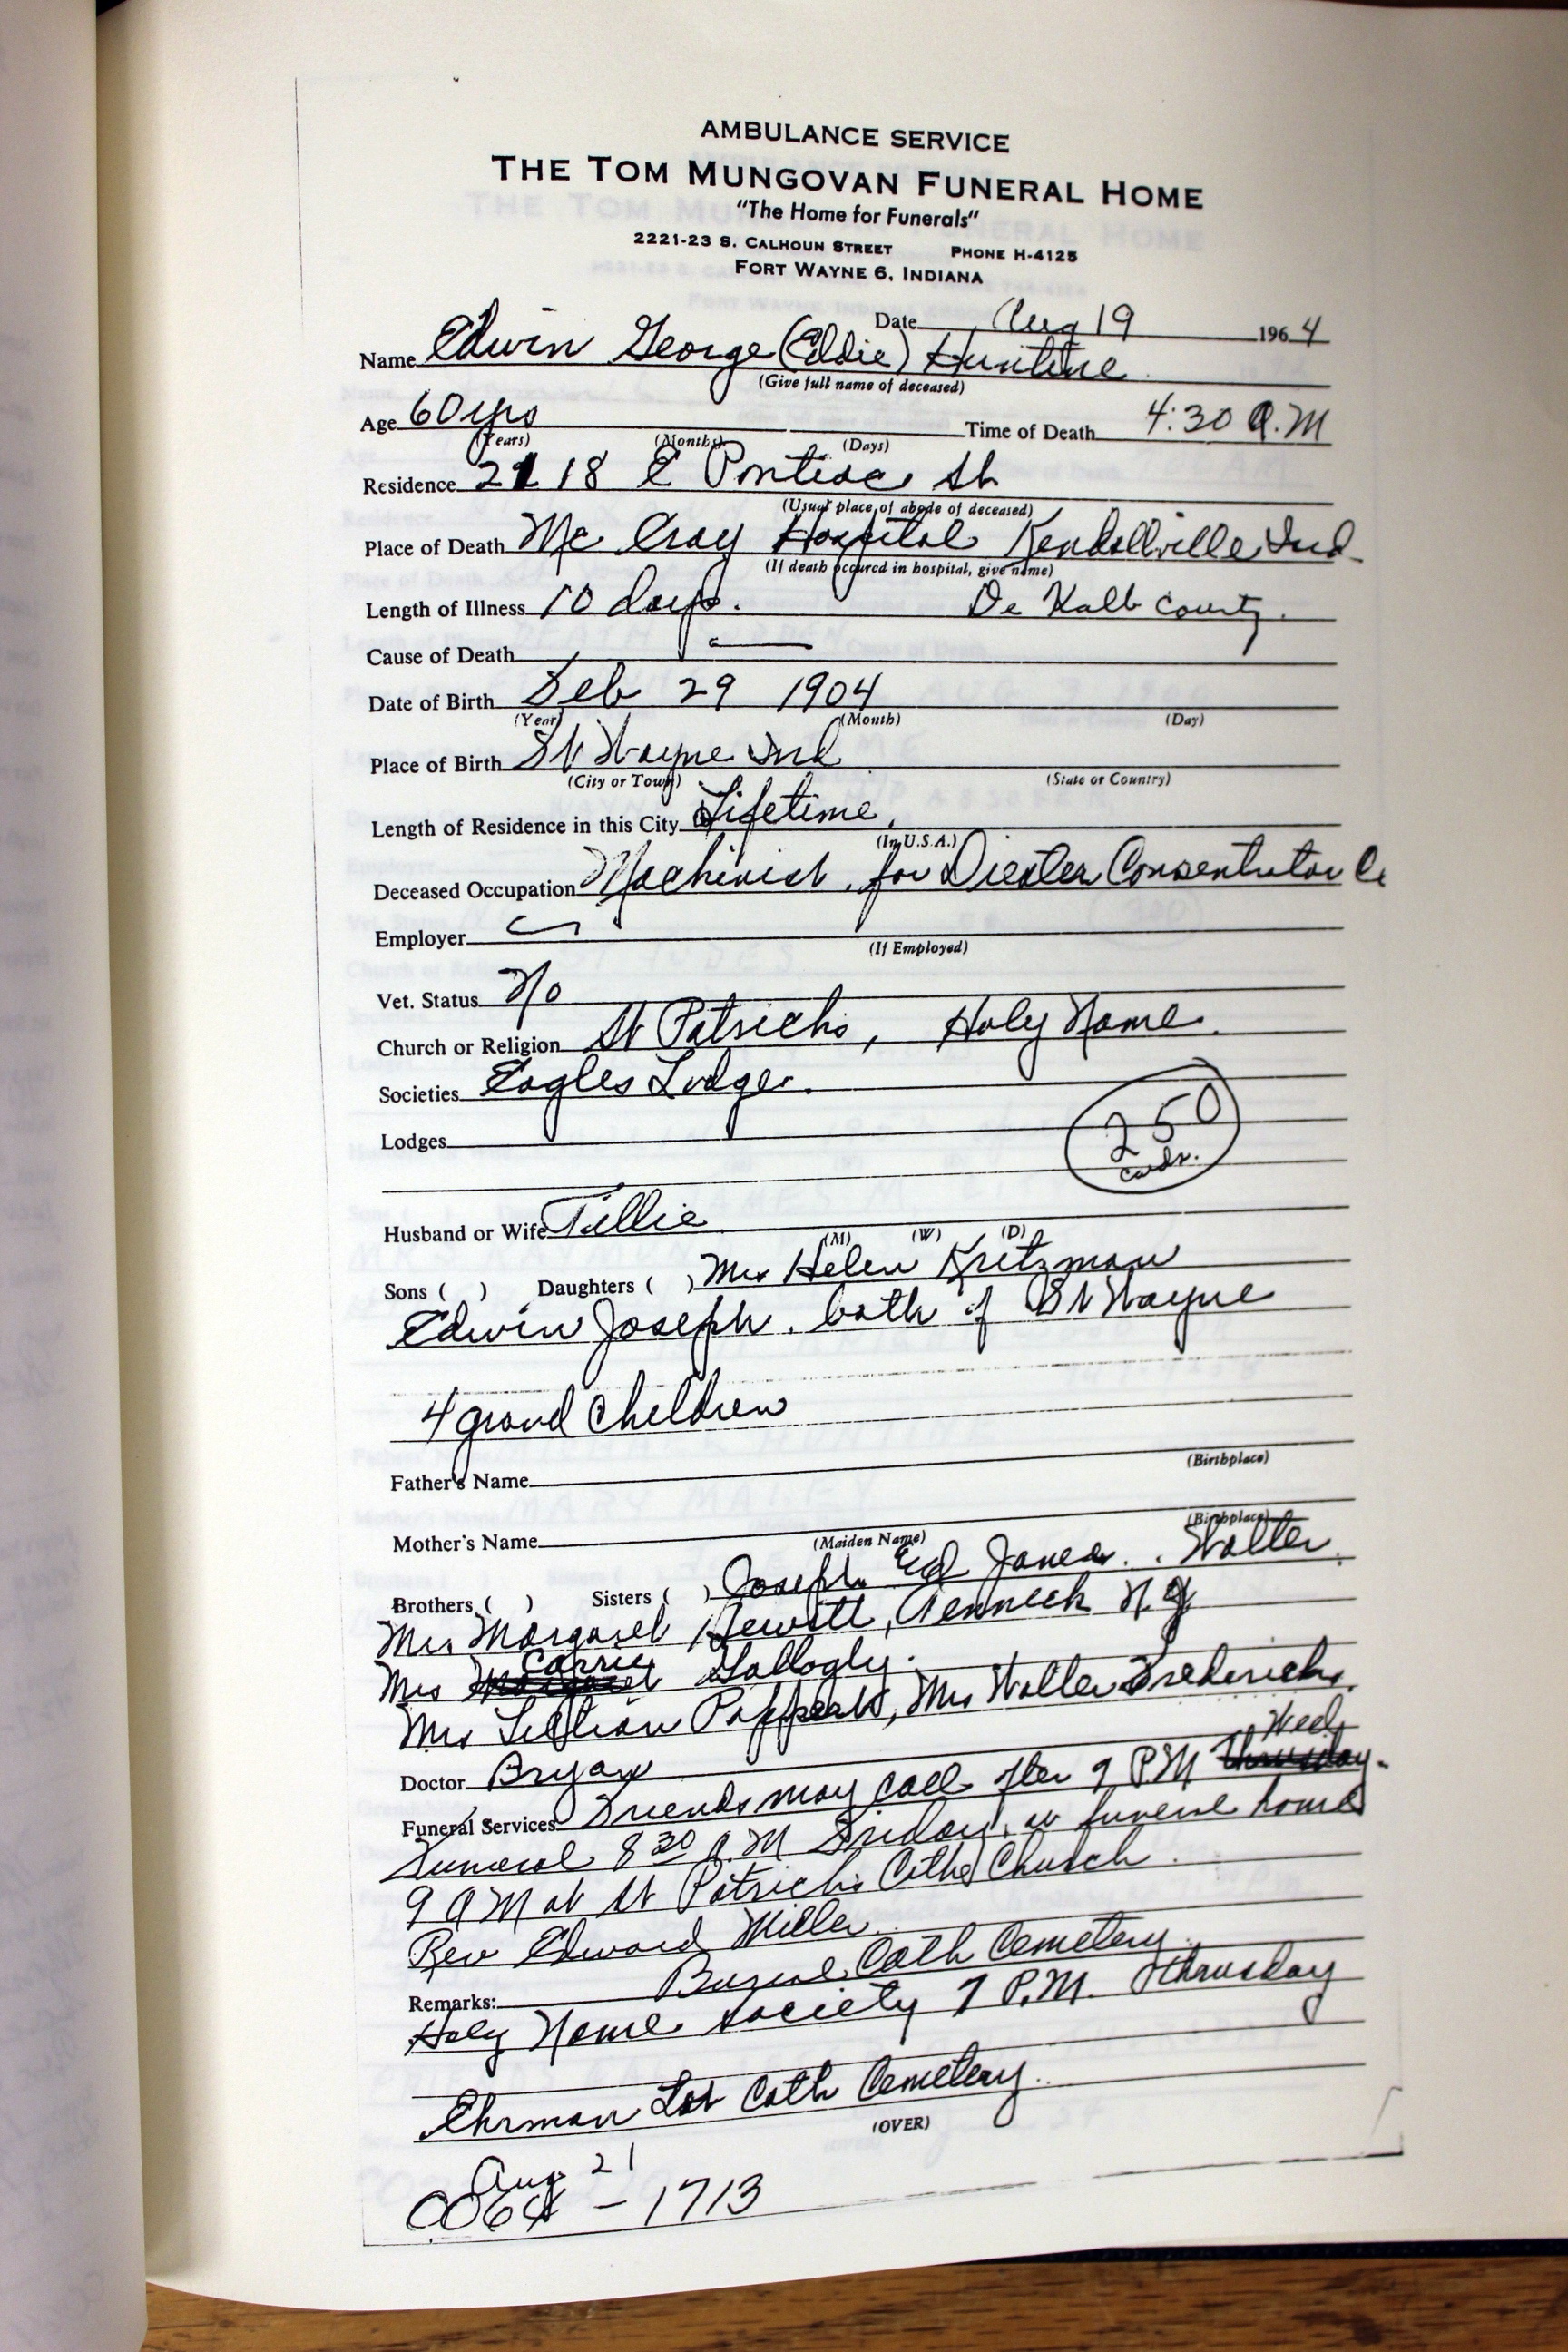 AMBULANCE SERVICE
THE TOM MUNGOVAN FUNERAL HOME
"The Home for Funerals"
2221-23 S. CALHOUN STREET PHONE H-4125
FORT WAYNE 6, INDIANA
Date Aug 19 1964
Name Edwin George (Eddie) Huntine
(Give full name of deceased)
Age 60 yrs Time of Death 4:30 A.M
(Years) (Months) (Days)
Residence 2118 E Pontiac St
(Usual place of abode of deceased)
Place of Death Mc Cray Hospital Kendallville Ind
(If death occured in hospital, give name)
Length of Illness 10 days. De Kalb County.
Cause of Death
Date of Birth Feb 29 1904
(Year) (Month) (Day)
Place of Birth Ft Wayne Ind
(City or Town) (State or Country)
Length of Residence in this City Lifetime
(In U.S.A.)
Deceased Occupation Machinist for Diester Consentrator Co
Employer
(If Employed)
Vet. Status No
Church or Religion St Patricks, Holy Name
Societies Eagles Lodge.
Lodges
250
cards.
Husband or Wife Tillie
(M) (W) (D)
Sons ( ) Daughters ( ) Mrs Helen Kritzman
Edwin Joseph, both of Ft Wayne
4 grand Children
Father's Name
(Birthplace)
Mother's Name
(Maiden Name) (Birthplace)
Brothers ( ) Sisters ( ) Joseph Ed James. Walter
Mrs Margaret Hewitt, Tenneck N.J
Mrs Carrie Gallogly.
Mrs Lillian, Mrs Walter Fredericks.
Doctor Bryan
Wed
Funeral Services Friends may call after 9 PM Thursday.
Funeral 8 30 A.M Friday, at funeral home
9 AM at St Patricks Cath Church.
Rev Edward Miller
Burial Cath Cemetery
Remarks:
Holy Name Society 7 P.M. Thrusday
Ehrman Lot Cath Cemetery.
(OVER)
Aug 21
64 - 1713